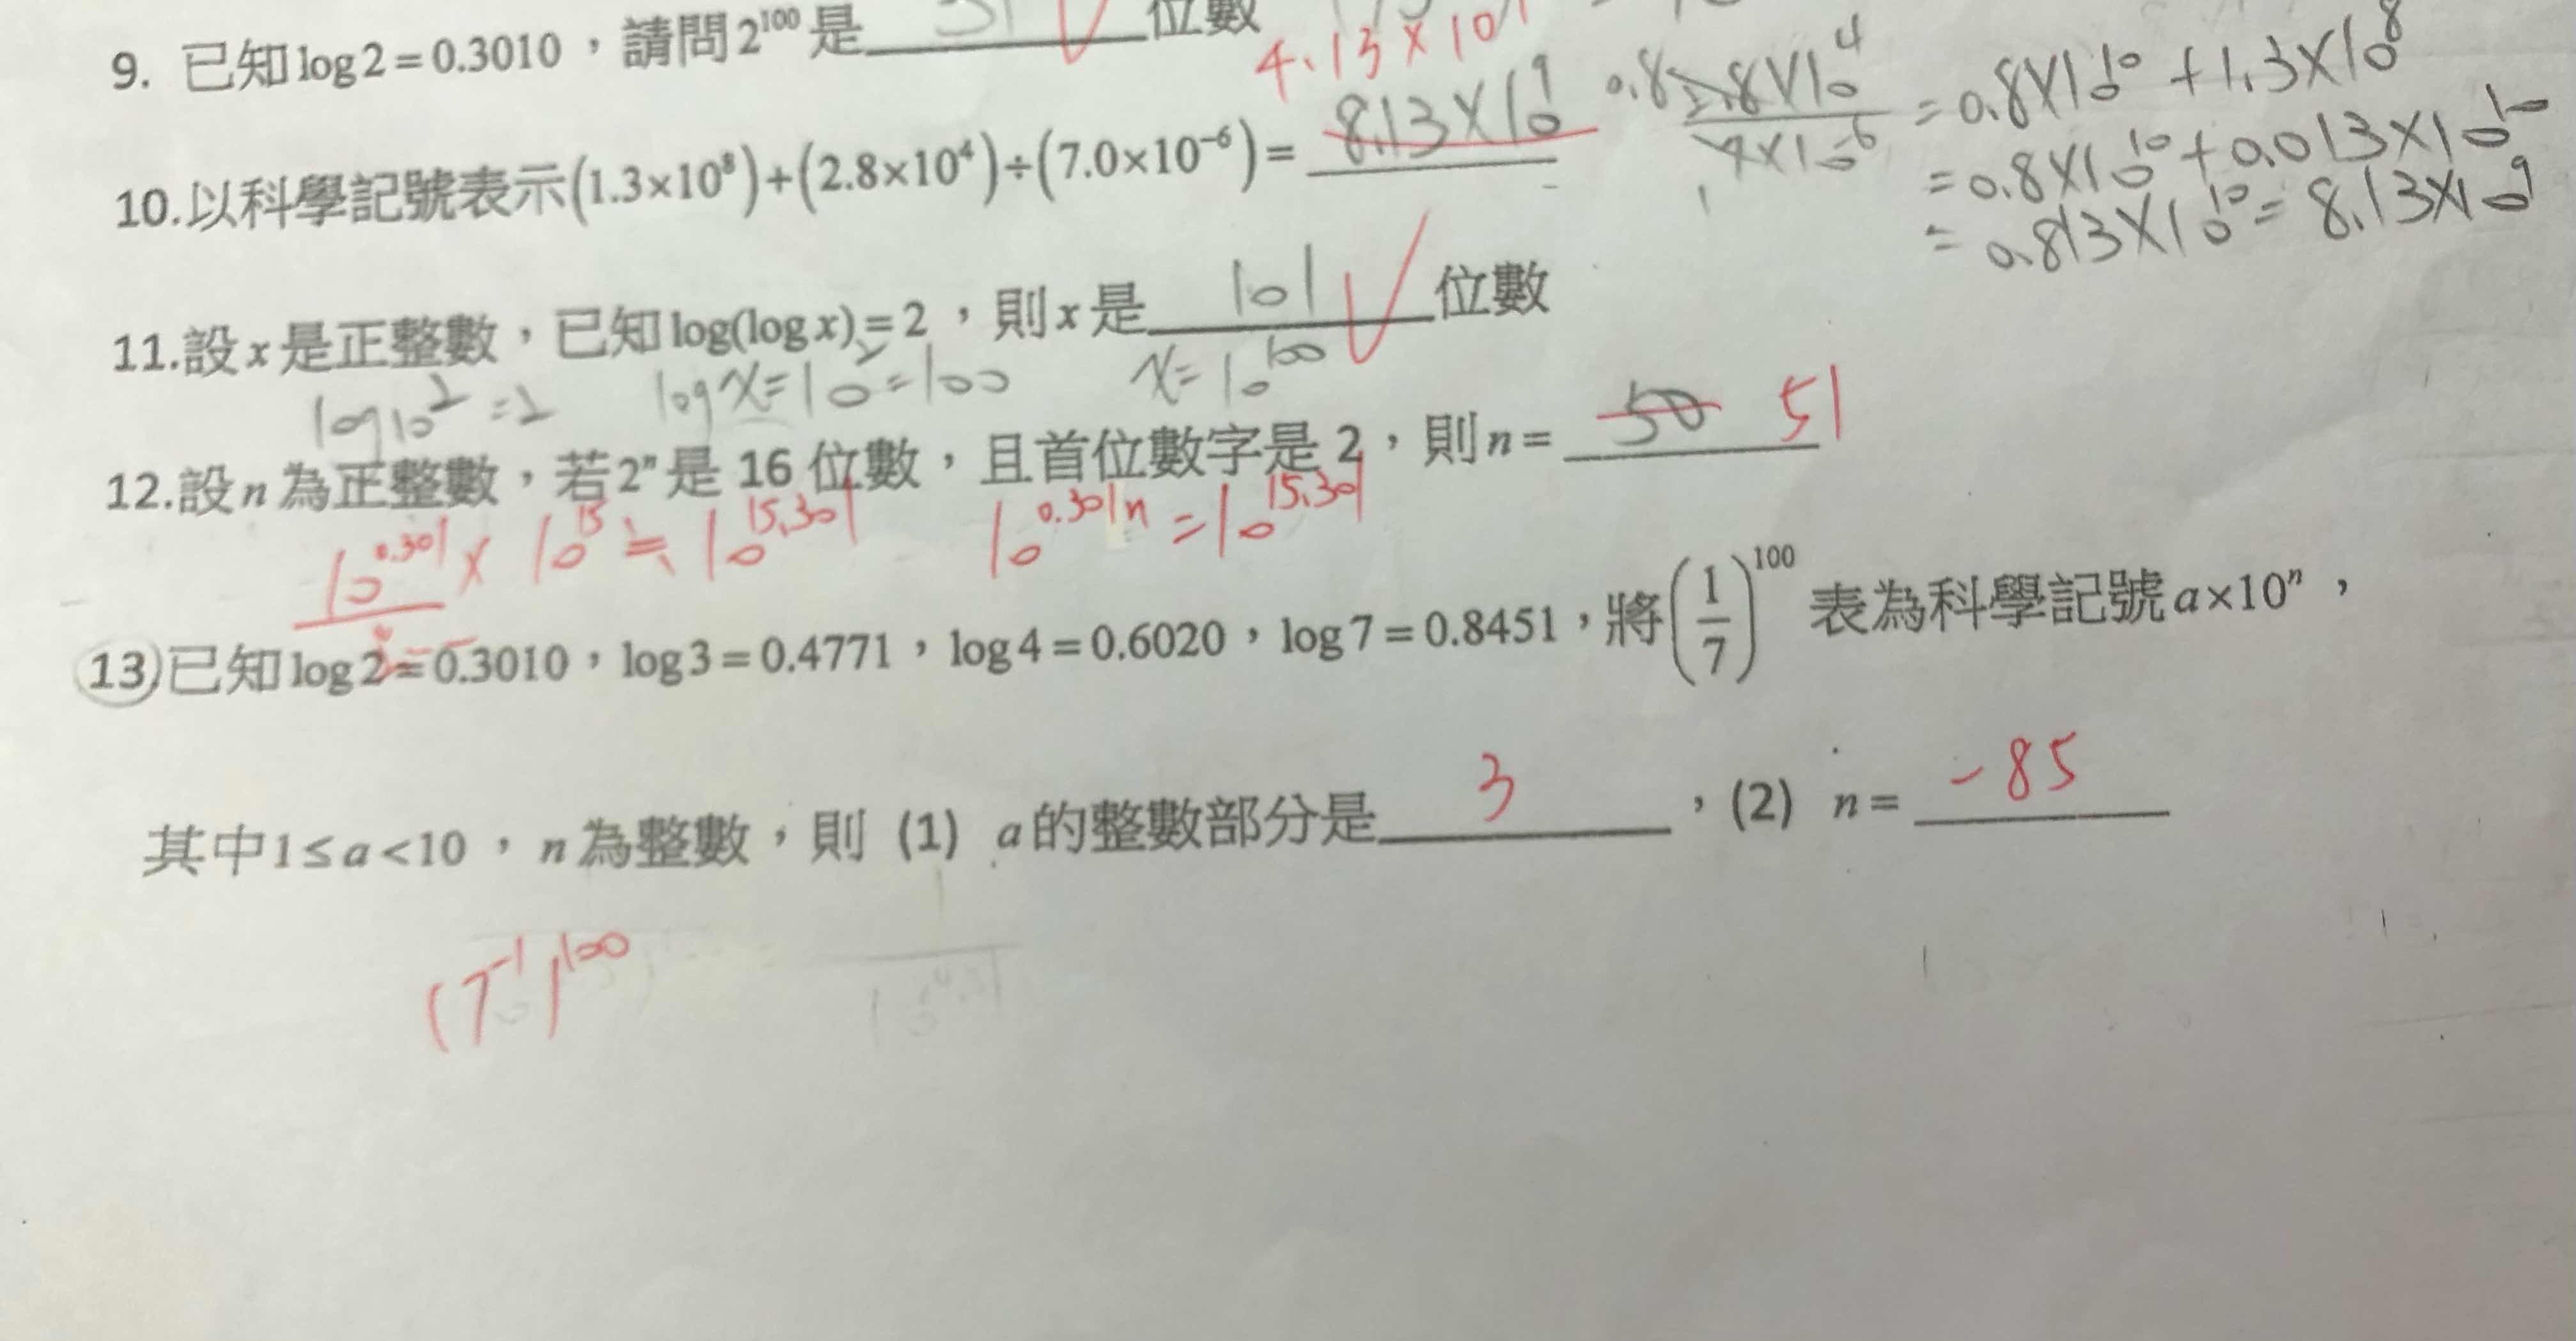 9. 已知 log 2 = 0.3010，請問 2¹⁰⁰ 是 31 位數
4.13×10⁹
10. 以科學記號表示 (1.3×10⁸)+(2.8×10⁴)÷(7.0×10⁻⁶)= 8.13×10⁹
= 0.8×10¹⁰ + 1.3×10⁸
= 0.8×10¹⁰ + 0.013×10¹⁰
= 0.813×10¹⁰ = 8.13×10⁹
11. 設 x 是正整數，已知 log(log x) = 2，則 x 是 101 位數
log10² = 2 log x = 10² = 100 x = 10¹⁰⁰
12. 設 n 為正整數，若 2ⁿ 是 16 位數，且首位數字是 2，則 n = 50 51
10^0.301 × 10^15 = 10^15.301 10^0.301n = 10^15.301
13. 已知 log 2 = 0.3010，log 3 = 0.4771，log 4 = 0.6020，log 7 = 0.8451，將 (1/7)¹⁰⁰ 表為科學記號 a×10ⁿ，
其中 1≤a<10，n 為整數，則 (1) a 的整數部分是 3，(2) n = -85
(7⁻¹)¹⁰⁰